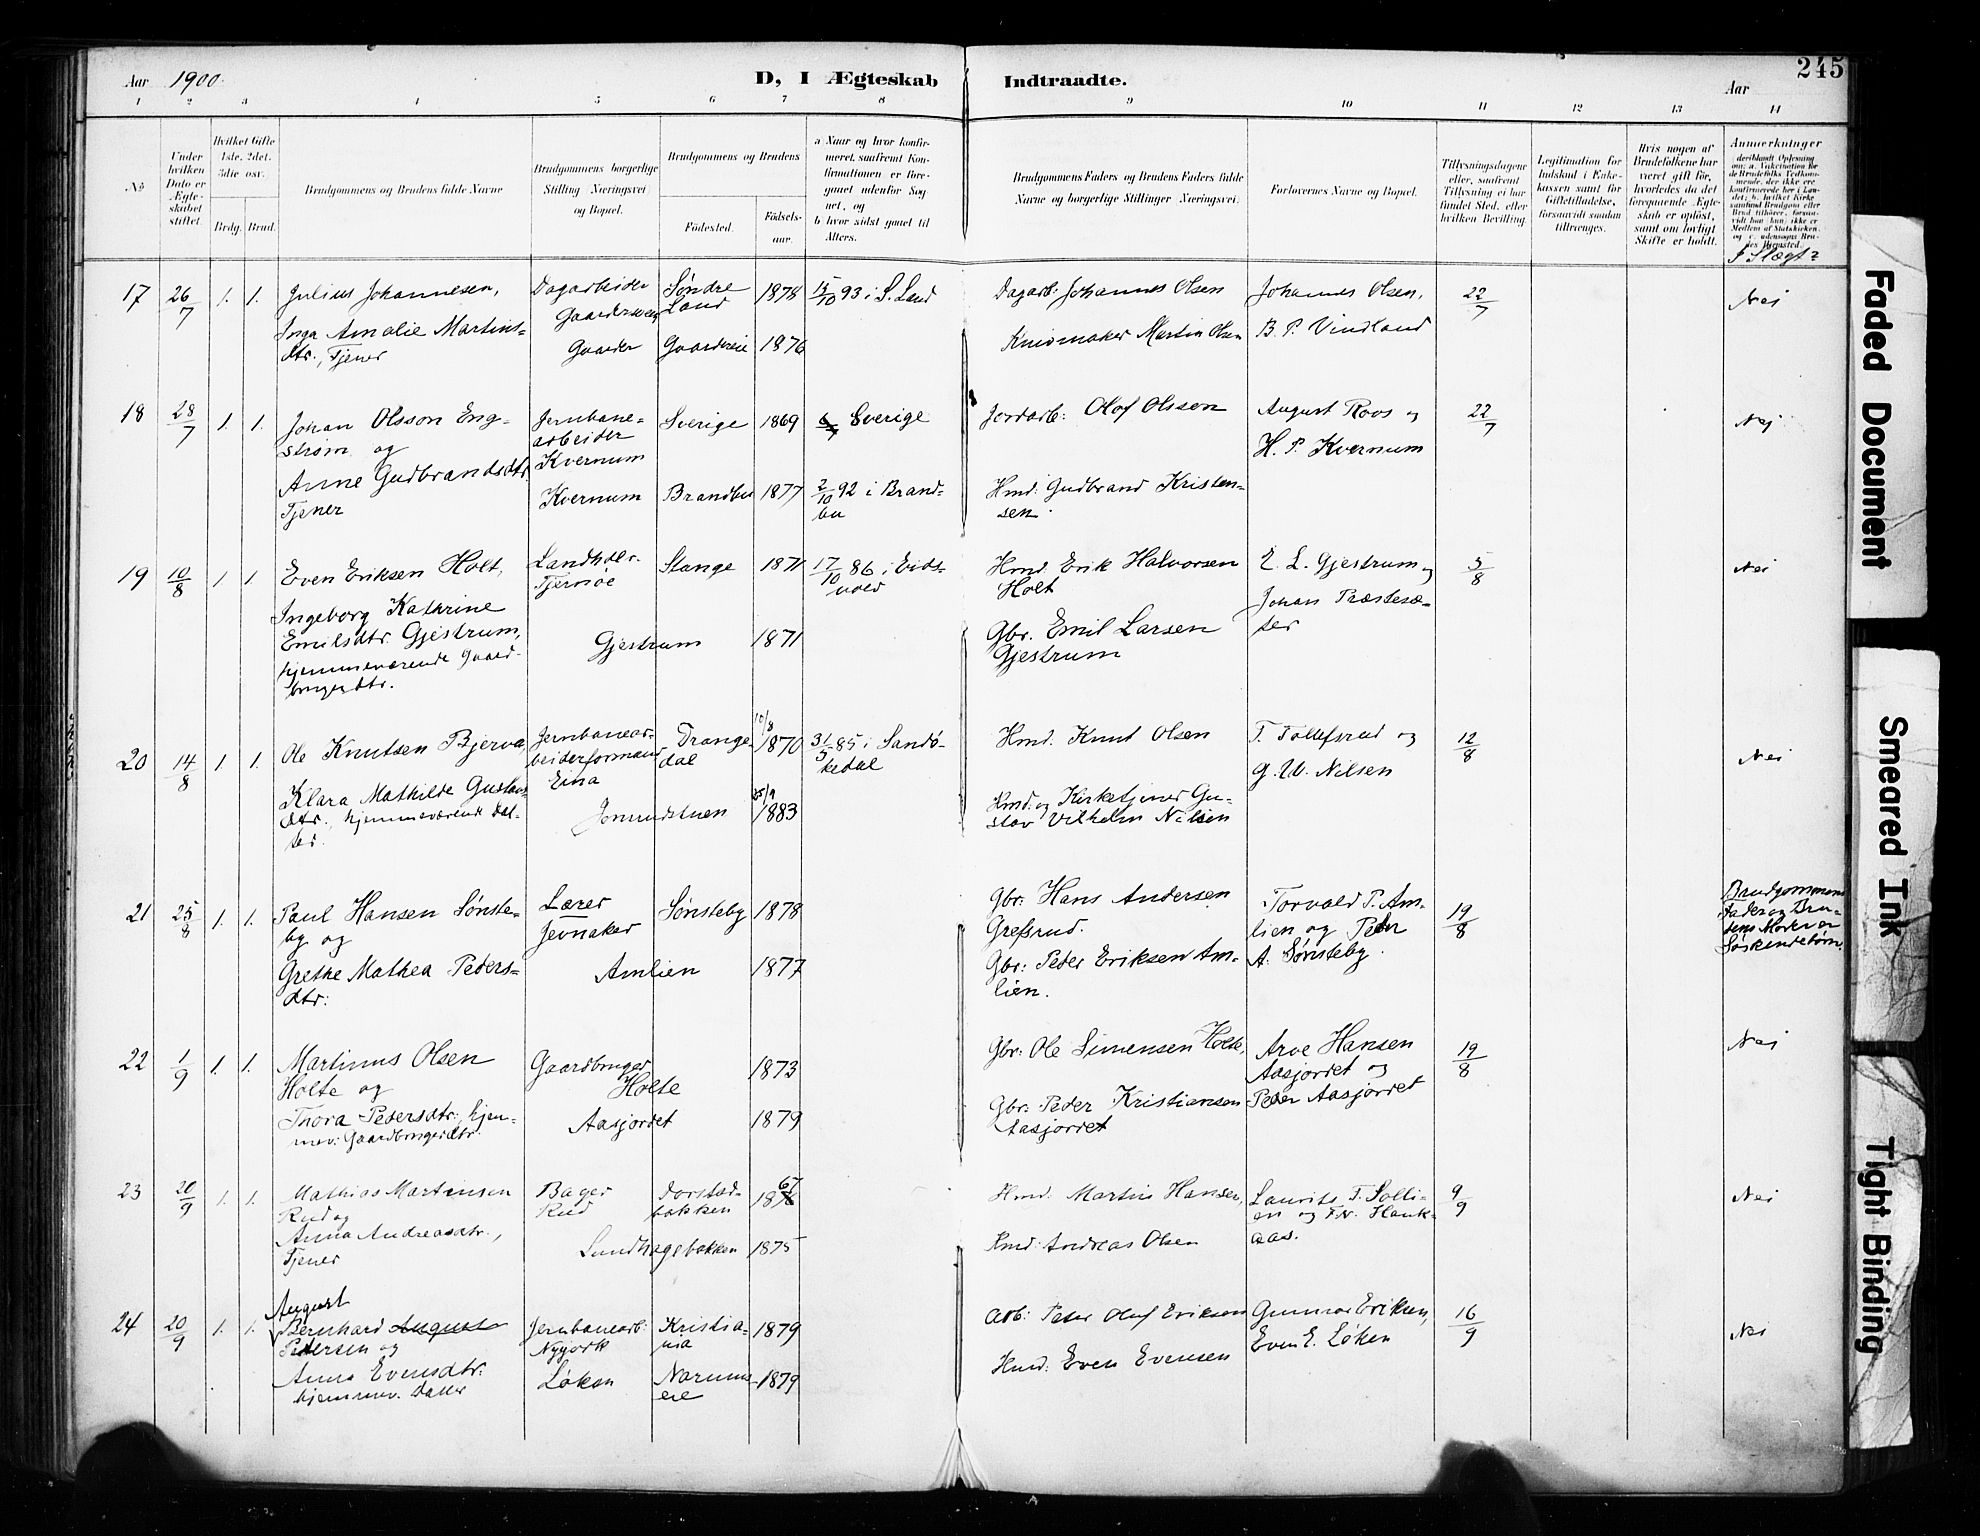 245
Aar 1900.
D, I Ægteskab Indtraadte.
Aar
1 2 3 4 5 6 7 8 9 10 11 12 13 14
No
Under hvilken Dato er Ægteskabet stiftet.
Hvilket Gifte 1ste, 2det, 3die osv.
Brdg. Brud.
Brudgommens og Brudens fulde Navne
Brudgommens borgerlige Stilling (Næringsvei) og Bopæl.
Brudgommens og Brudens
Fødested.
Fødselsaar.
a Naar og hvor konfirmeret, saafremt Konfirmationen er foregaaet udenfor Sognet, og
b hvor sidst gaaet til Alters.
Brudgommens Faders og Brudens Faders fulde Navne og borgerlige Stillinger (Næringsvei).
Forlovernes Navne og Bopæl.
Tillysningsdagene eller, saafremt Tillysning ei har fundet Sted, efter hvilken Bevilling.
Legitimation for Indskud i Enkekassen samt for Giftetilladelse, forsaavidt saadan tiltrænges.
Hvis nogen af Brudefolkene har været gift før, hvorledes da det foregaaende Ægteskab er opløst, samt om lovligt Skifte er holdt.
Anmerkninger
I Slægt?
17 26/7 1. 1. Julius Johannesen, Dagarbeider Søndre 1878 15/10 93 i S. Land Dagarb: Johannes Olsen Johannes Olsen, 22/7 Nei
Land
Inga Amalie Martins- Kniomaker Martin Olsen B. P. Vindland
dtr., Tjener Gaarder Gaardereie 1876
18 28/7 1. 1. Johan Olsson Eng- Jernbane- Sverige 1869 Sverige Jordarb: Olof Olsson August Roos og 22/7 Nej
strøm og arbeider H. P. Kvernum
Kvernum
Anne Gudbrandsdtr. Kvernum Brandbu 1877 2/10 92 i Brand- Hmd: Gudbrand Kristen-
Tjener bu sen.
19 10/8 1. 1. Even Eriksen Holt, Landhdlr. Stange 1871 17/10 86 i Eids- Hmd. Erik Halvorsen E. L. Gjestrum og 5/8 Nei
Tjernøe vold Holt Johan Præstesæ-
Ingeborg Kathrine ter
Emilsdtr. Gjestrum, Gjestrum 1871 Gbr. Emil Larsen
hjemmeværende Gaard- Gjestrum
brugerdtr.
20 14/8 1. 1. Ole Knutsen Bjerva Jernbanear- Drange- 10/8 1870 31/5 85 i Sandø- Hmd. Knut Olsen T. Tollefsrud og 12/8 Nei
beiderformand dal kedal G. W. Nilsen
Eina
Klara Mathilde Gustavs- Jonrudstuen 1883 Hmd. og Kirketjener Gu-
dtr., hjemmeværende Dat- stav Vilhelm Nilsen
ter.
21 25/8 1. 1. Paul Hansen Sønste- Lærer Sønsteby 1878 Gbr: Hans Andersen Torvald P. Am- 19/8 Brudgommens
by og Jevnaker Grefsrud. lien og Peder Fader og Bru-
Grethe Mathea Peders- Amlien 1877 Gbr: Peder Eriksen Am- A. Sønsteby. dens Moder er
dtr: lien. Søskendebørn.
22 1/9 1. 1. Martinus Olsen Gaardbruger 1873 Gbr: Ole Simensen Holte, Arve Hansen 19/8 Nei
Holte og Holte Aasjordet og
Thora Pedersdtr: hjem- Aasjordet 1879 Gbr: Peder Kristiansen Peder Aasjordet
mev: Gaardbrugerdtr. Aasjordet
23 20/9 1. 1. Mathias Martinsen Bager 1867 Hmd. Martin Hansen, Laurits T. Solli- 9/9 Nei
Rud og Rud bakken en og
Anna Andreasdtr., Lundhagebakken 1875 Hmd: Andreas Olsen aas.
Tjener
August
24 20/9 1. 1. Bernhard August Jernbanearb: Kristia- 1879 Arb: Peter Olaf Eriksen Gunnar Eriksen, 16/9 Nei
Pedersen og Nyjork nia Even E. Løken
Anna Evensdtr. Løken Narums- 1879 Hmd: Even Evensen
hjemmev. Datter eie
Faded Document
Smeared Ink
Tight Binding